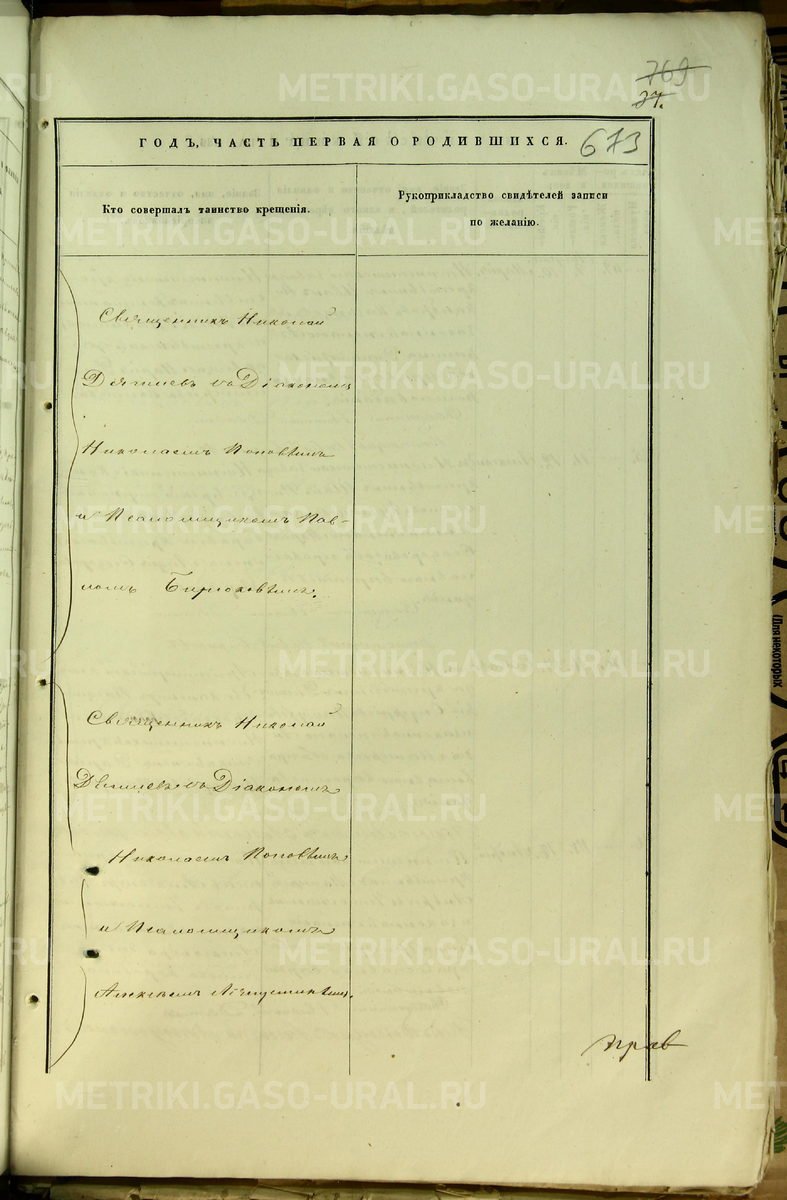 769
27.
673
ГОДЪ, ЧАСТЬ ПЕРВАЯ О РОДИВШИХСЯ.
Кто совершалъ таинство крещенія.
Рукоприкладство свидѣтелей записи
по желанію.
Священникъ Николай
съ Діакономъ
Николаемъ Поповымъ
и Псаломщикомъ Пав-
ломъ Бирюковымъ.
Священникъ Николай
съ Діакономъ
Николаемъ Поповымъ
и Псаломщикомъ
METRIKI.GASO-URAL.RU